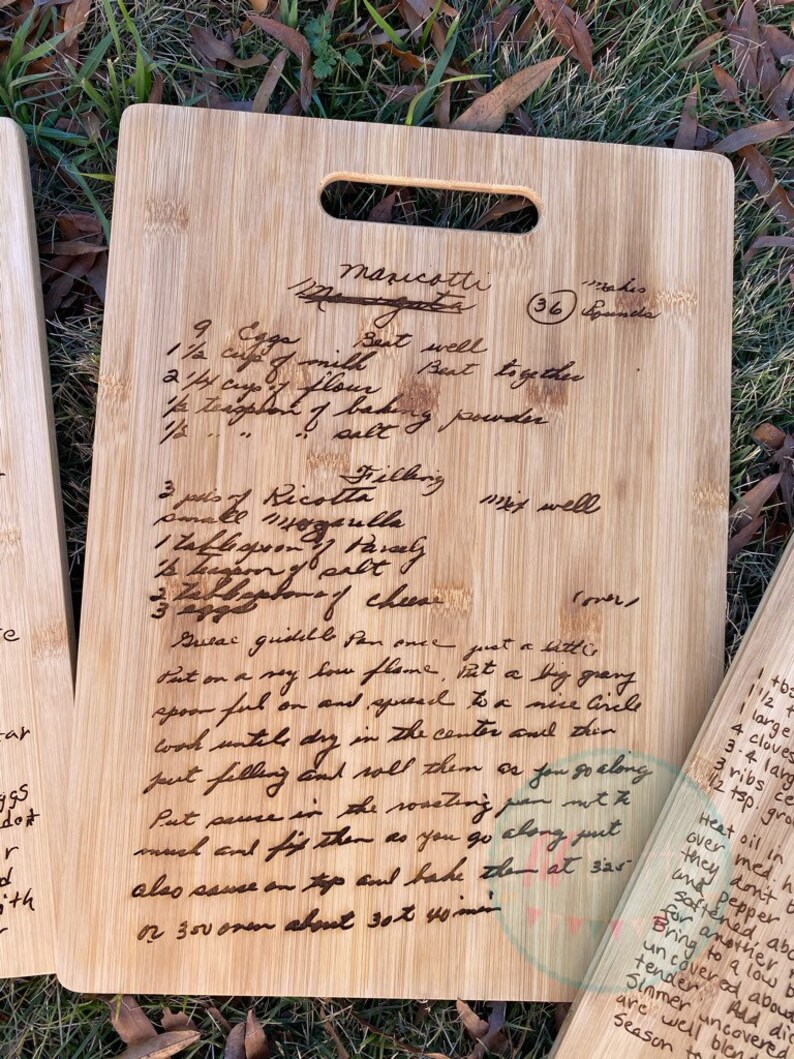 Manicotti
Makes
36 Rounds
9 Eggs Beat well
1 1/2 cup of milk Beat together
2 1/4 cup of flour
1/2 teaspoon of baking powder
1/2 " " " salt
Filling
3 of Ricotta Mix well
small Mozzarella
1 tablespoon of Parsely
1/2 teaspoon of salt
2 tablespoons of cheese (over)
3 eggs
Grease griddle Pan once just a little
Put on a very low flame. Put a big gravy
spoon ful on and spread to a nice Circle
cook untile dry in the center and then
put filling and roll them as you go along
Put sauce in the roasting pan not to
much and fix them as you go along put
also sauce on top and bake them at 325
or 300 oven about 30 to 40 min
te
ar
ggs
dot
r
d
ith
r
1 tb
1 1/2 t
1 large
4 cloves
3-4 larg
3 ribs ce
1/2 tsp. gro
Heat oil in
over med h
they don't b
and pepper
softened abo
for another
Bring to a low b
uncovered about
tender. Add di
Simmer uncovered
are well blen
Season to